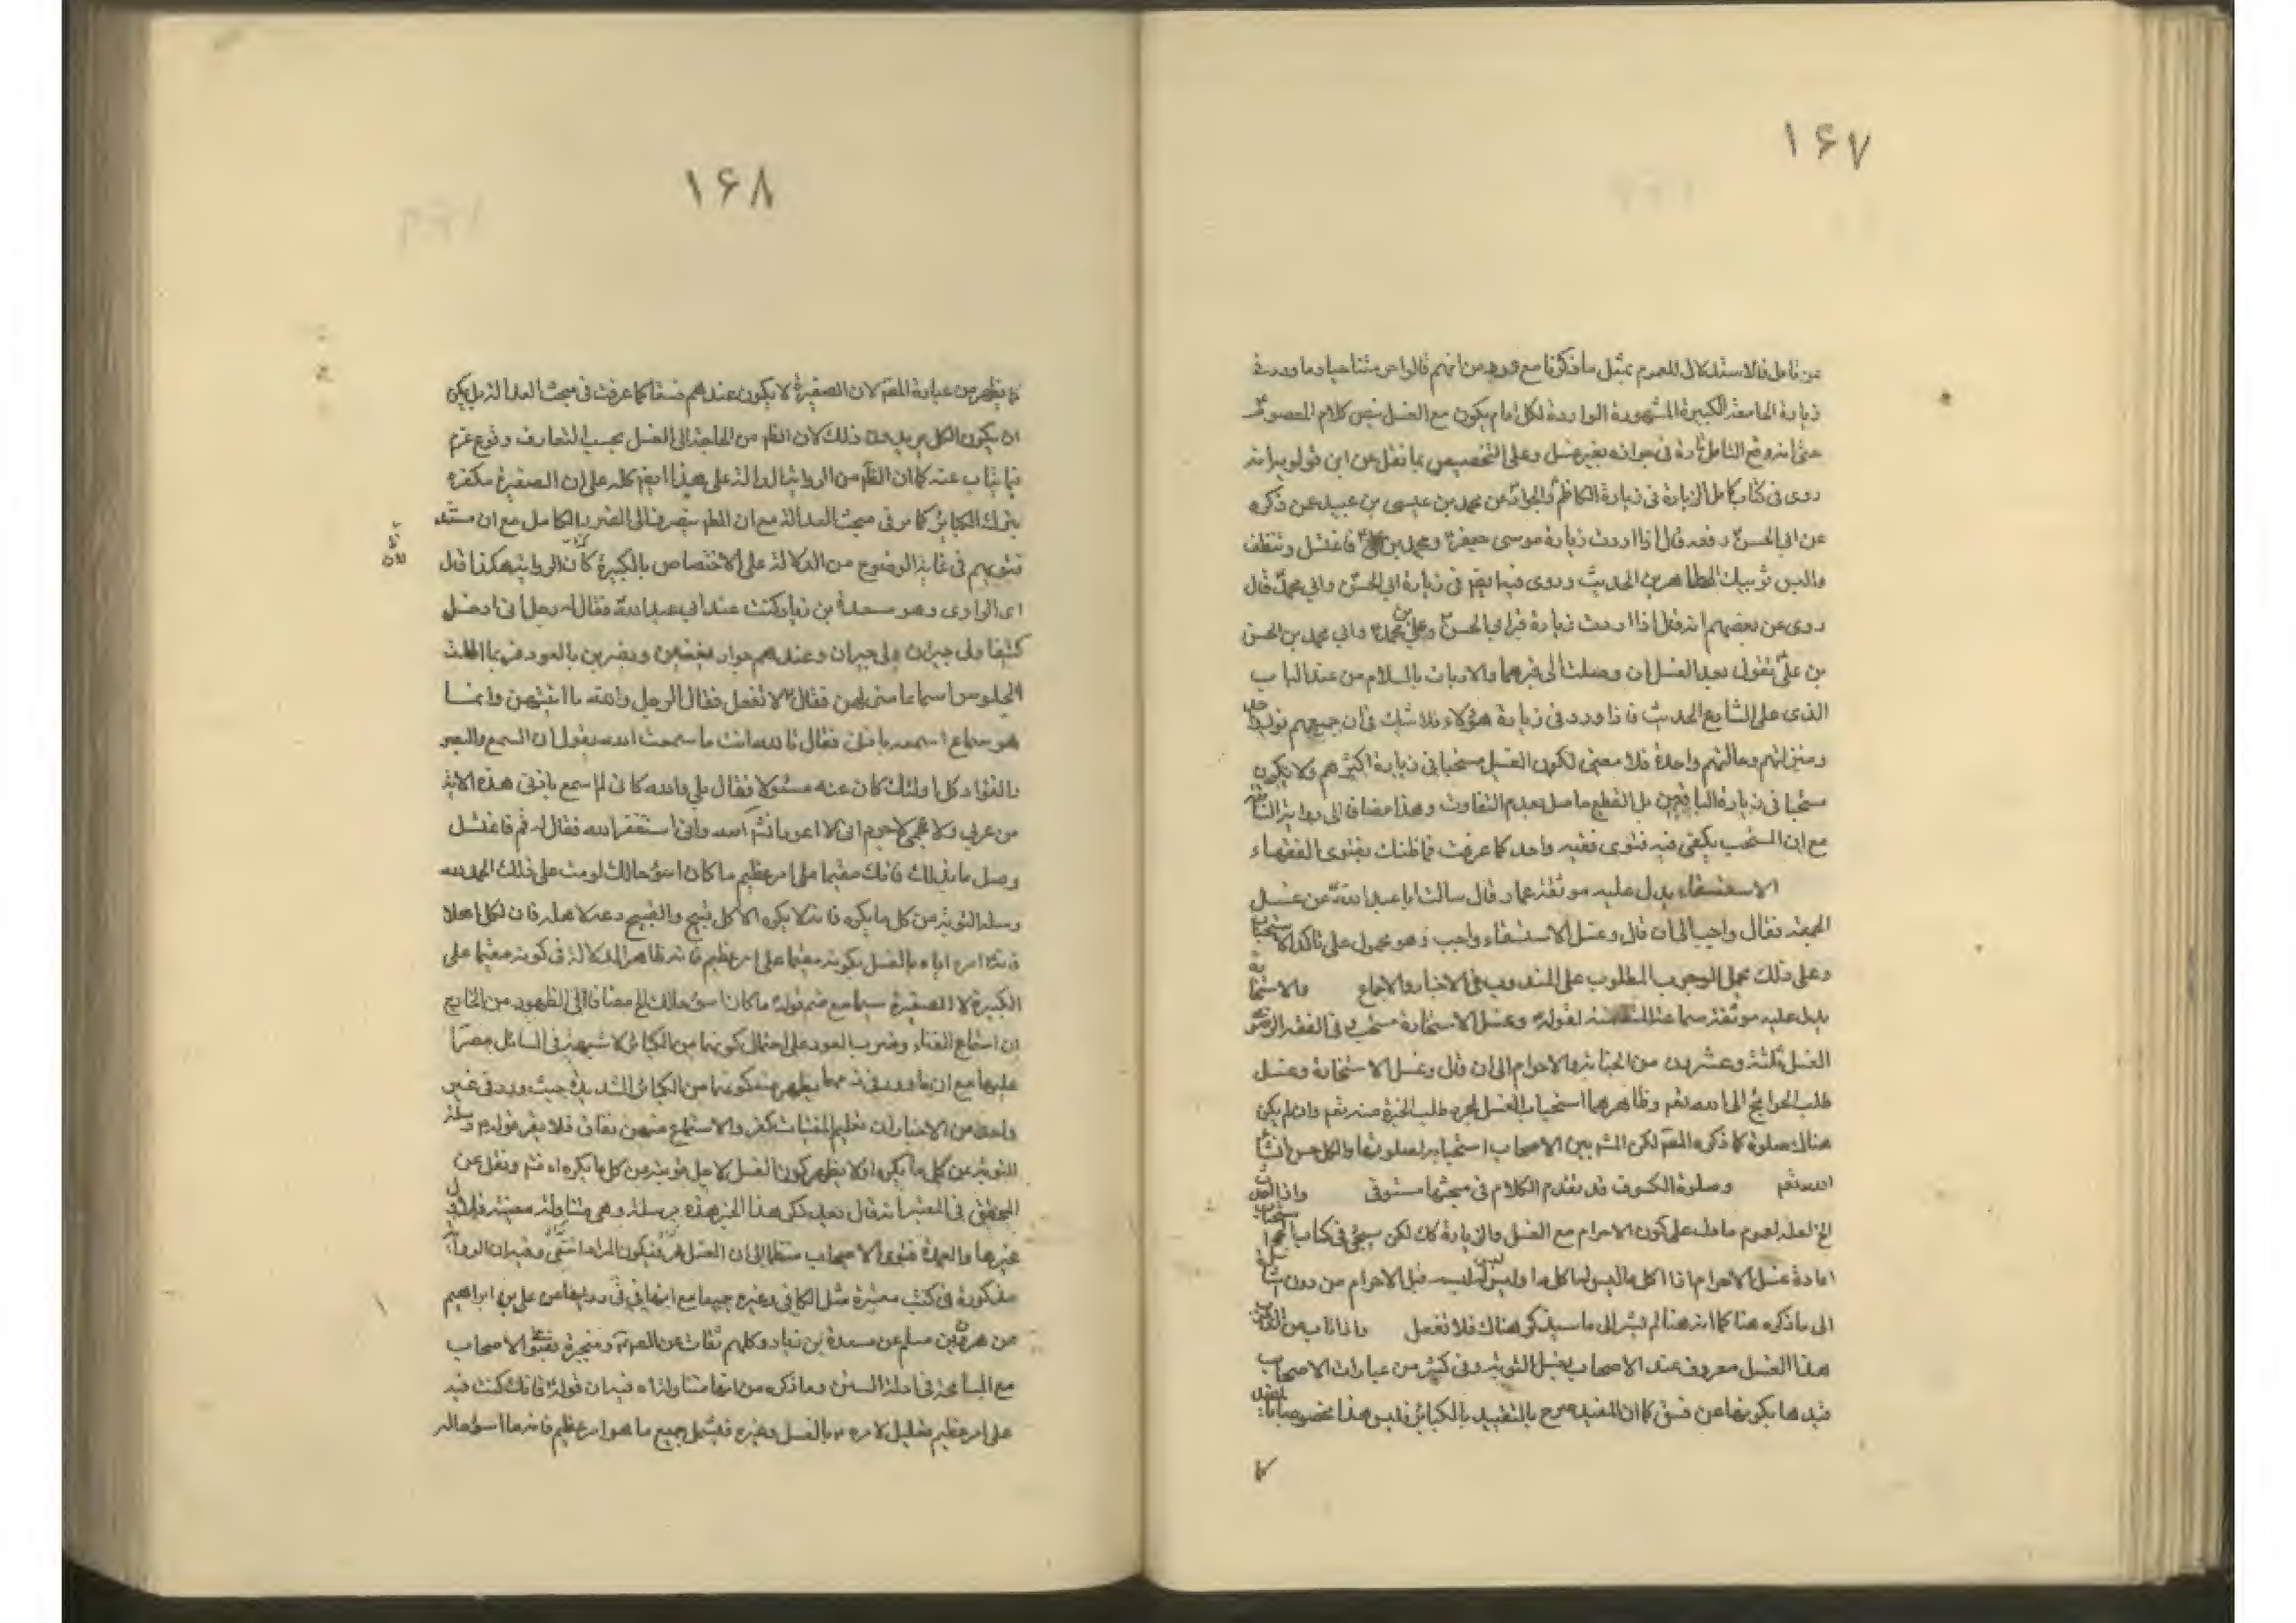 ۱۶۷
عن تامل فالاستدلال للعموم بمثل ما ذكرنا مع من انهم قالوا من حيا وما ورد في
زيارة الجامعة الكبيرة المشهورة الواردة لكل امام يكون مع الغسل بنص كلام المعصوم
حتى انه وقع التامل تارة في جوازه بغير غسل وعلى التخصيص بما نقل عن ابن قولويه انه
روى في كتاب كامل الزيارة في زيارة الكاظم والجواد عن محمد بن عيسى بن عبيد عمن ذكره
عن ابي الحسن رفعه قال اذا اردت زيارة موسى جعفر ومحمد بن علي فاغتسل وتنظف
والبس ثوبيك الطاهرين الحديث وروى فيه ايضم في زيارة ابي الحسن وابي محمد قال
روى عن بعضهم انه قال اذا اردت زيارة قبر ابي الحسن علي بن محمد وابي محمد بن الحسن
بن علي تقول بعد الغسل ان وصلت الى قبرهما والا اومات بالسلام من عند الباب
الذي على الشارع الحديث فاذا ورد في زيارة هؤلاء فلا شك في ان جميعهم نور واحد
ومنزلتهم وحالتهم واحدة فلا معنى لكون الغسل مستحبا في زيارة اكثرهم ولا يكون
مستحبا في زيارة الباقين بل القطع حاصل بعدم التفاوت وهذا مضافا الى رواية
مع ان المستحب يكفي فيه فتوى فقيه واحد كما عرفت فما ظنك بفتوى الفقهاء
الاستسقاء يدل عليه موثقة عمار قال سالت ابا عبد الله عن غسل
الجمعة فقال واجب الى ان قال وغسل الاستسقاء واجب وهو محمول على تاكد الاستحباب
وعلى ذلك يحمل الوجوب المطلوب على الندب في الاخبار والاجماع والاستخارة
يدل عليه موثقة سماعة لقوله وغسل الاستخارة مستحب وفي الفقه الرضوي
الغسل ثلثة وعشرون من الجنابة والاحرام الى ان قال وغسل الاستخارة وغسل
طلب الحوائج الى الله تعم وظاهرهما استحباب الغسل لمجرد طلب الخيرة منه تعم وان لم يكن
هناك صلوة كما ذكره المصم لكن المشم بين الاصحاب استحبابه لصلوتها والكل حسن انشاء
الله تعم وصلوة الكسوف قد تقدم الكلام في مبحثها مستوفى واذا
الخ لعله لعموم ما دل على كون الاحرام مع الغسل والزيارة كك لكن سيجئ في كتاب الحج استحباب
اعادة غسل الاحرام اذا اكل ما ليس له اكله او لبس ما ليس له لبسه قبل الاحرام من دون
الى ما ذكره هنا كما انه هنا لم يشر الى ما سيذكر هناك فلا تغفل واذا تاب عن
هذا الغسل معروف عند الاصحاب بغسل التوبة وفي كثير من عبارات الاصحاب
قيدها بكونها عن فسق كما ان المفيد صرح بالتقييد بالكبائر فليس هذا مخصوصا
كا
۱۶۸
كما يظهر من عبارة المصم لان الصغيرة لا يكون عندهم فسقا كما عرفت في مبحث العدالة بل يمكن
ان يكون الكل يريدون ذلك لان الظم من الحاجة الى الغسل بحسب المتعارف وقوع عزم
فيما يتاب عنه كما ان الظم من الرواية الدالة على هذا ايضم كله على ان الصغيرة مكفرة
بترك الكبائر كما مر في مبحث العدالة مع ان المطم ينصرف الى الفرد الكامل مع ان مستند
فتويهم في غاية الوضوح من الدلالة على الاختصاص بالكبيرة كان الرواية هكذا قال
اى الراوى وهو مسعدة بن زياد كنت عند ابي عبد الله فقال له رجل اني ادخل
كنيفا ولي جيران وعندهم جوار يتغنين ويضربن بالعود فربما اطلت
الجلوس استماعا مني لهن فقال لا تفعل فقال الرجل والله ما اتيتهن وانما
هو سماع اسمعه باذني فقال تالله انت ما سمعت الله يقول ان السمع والبصر
والفؤاد كل اولئك كان عنه مسئولا فقال بلى والله كاني لم اسمع باذني هذه الاية
من عربي ولا عجمي لا جرم اني لا اعود انشم الله واني استغفر الله فقال له قم فاغتسل
وصل ما بدا لك فانك مقيما على امر عظيم ما كان اسوء حالك لو مت على ذلك الحمد لله
وسله التوبة من كل ما يكره فانه لا يكره الا كل قبيح والقبيح دعه لاهله فان لكل اهلا
فانه امره اياه بالغسل بكونه مقيما على امر عظيم فانه ظاهر الدلالة في كونه مقيما على
الكبيرة لا الصغيرة سيما مع ضم قوله ما كان اسوء حالك الخ مضافا الى الظهور من الخارج
ان استماع الغناء وضرب العود على احتمال كونهما من الكبائر لا شبهة في السائل مصرا
عليها مع ان ما ورد في ذمهما يظهر منه كونهما من الكبائر الشديدة حيث ورد في غير
واحد من الاخبار ان تعليم المغنيات كفر والاستماع منهن نفاق فلا يضر قوله وسله
التوبة عن كل ما يكره اذ لا يظهر كون الغسل لاجل توبته من كل ما يكره الله تعم ونقل عن
المحقق في المعتبر انه قال بعد ذكر هذا الخبر هذه مرسلة وهي متناولة صورة معينة فلا يتناول
غيرها والعمدة فتوى الاصحاب منضما الى ان الغسل خير فيكون المراد انتهى وفيه ان الرواية
مذكورة في كتب معتبرة مثل الكافي وغيره جميعا مع انها في في رواها عن علي بن ابراهيم
عن هرون بن مسلم عن مسعدة بن زياد وكلهم ثقات ومنجبرة بفتوى الاصحاب
مع المسامحة في ادلة السنن وما ذكره من انها متناولة فيه ان قوله فانك كنت
على امر عظيم تعليل لامره بالغسل وغيره فيشمل جميع ما هو امر عظيم فانه ما اسوء حاله